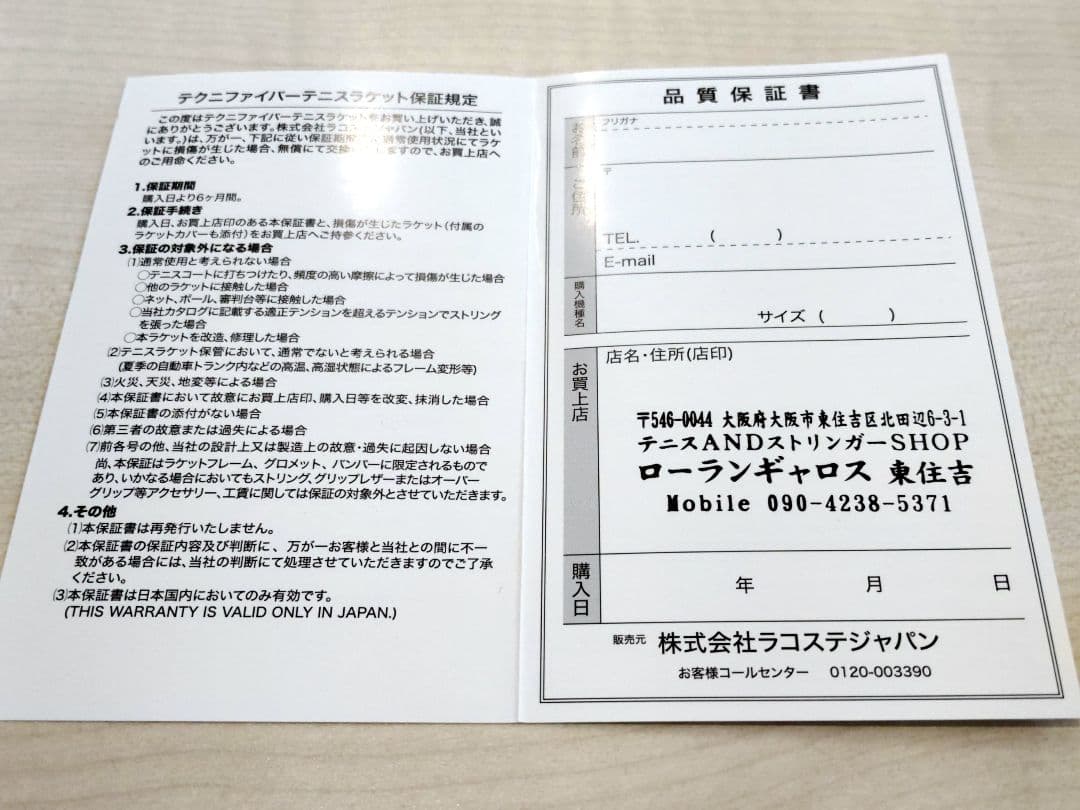 テクニファイバーテニスラケット保証規定
この度はテクニファイバーテニスラケットをお買い上げいただき、誠
にありがとうございます。株式会社ラコステジャパン(以下、当社とい
います。)は、万が一、下記に従い保証期 通常使用状況にてラケ
ットに損傷が生じた場合、無償にて交換 しますので、お買上店へ
のご用命ください。
1.保証期間
購入日より6ヶ月間。
2.保証手続き
購入日、お買上店印のある本保証書と、損傷が生じたラケット(付属の
ラケットカバーも添付)をお買上店へご持参ください。
3.保証の対象外になる場合
(1)通常使用と考えられない場合
○テニスコートに打ちつけたり、頻度の高い摩擦によって損傷が生じた場合
○他のラケットに接触した場合
○ネット、ポール、審判台等に接触した場合
○当社カタログに記載する適正テンションを超えるテンションでストリング
を張った場合
○本ラケットを改造、修理した場合
(2)テニスラケット保管において、通常でないと考えられる場合
(夏季の自動車トランク内などの高温、高湿状態によるフレーム変形等)
(3)火災、天災、地変等による場合
(4)本保証書において故意にお買上店印、購入日等を改変、抹消した場合
(5)本保証書の添付がない場合
(6)第三者の故意または過失による場合
(7)前各号の他、当社の設計上又は製造上の故意・過失に起因しない場合
尚、本保証はラケットフレーム、グロメット、バンパーに限定されるもので
あり、いかなる場合においてもストリング、グリップレザーまたはオーバー
グリップ等アクセサリー、工賃に関しては保証の対象外とさせていただきます。
4.その他
(1)本保証書は再発行いたしません。
(2)本保証書の保証内容及び判断に、万が一お客様と当社との間に不一
致がある場合には、当社の判断にて処理させていただきますのでご了承
ください。
(3)本保証書は日本国内においてのみ有効です。
(THIS WARRANTY IS VALID ONLY IN JAPAN.)
品質保証書
フリガナ
お名前
ご住所
〒
TEL. ( )
E-mail
購入機種名
サイズ ( )
お買上店
店名・住所(店印)
〒546-0044 大阪府大阪市東住吉区北田辺6-3-1
テニスANDストリンガーSHOP
ローランギャロス 東住吉
Mobile 090-4238-5371
購入日
年 月 日
販売元 株式会社ラコステジャパン
お客様コールセンター 0120-003390